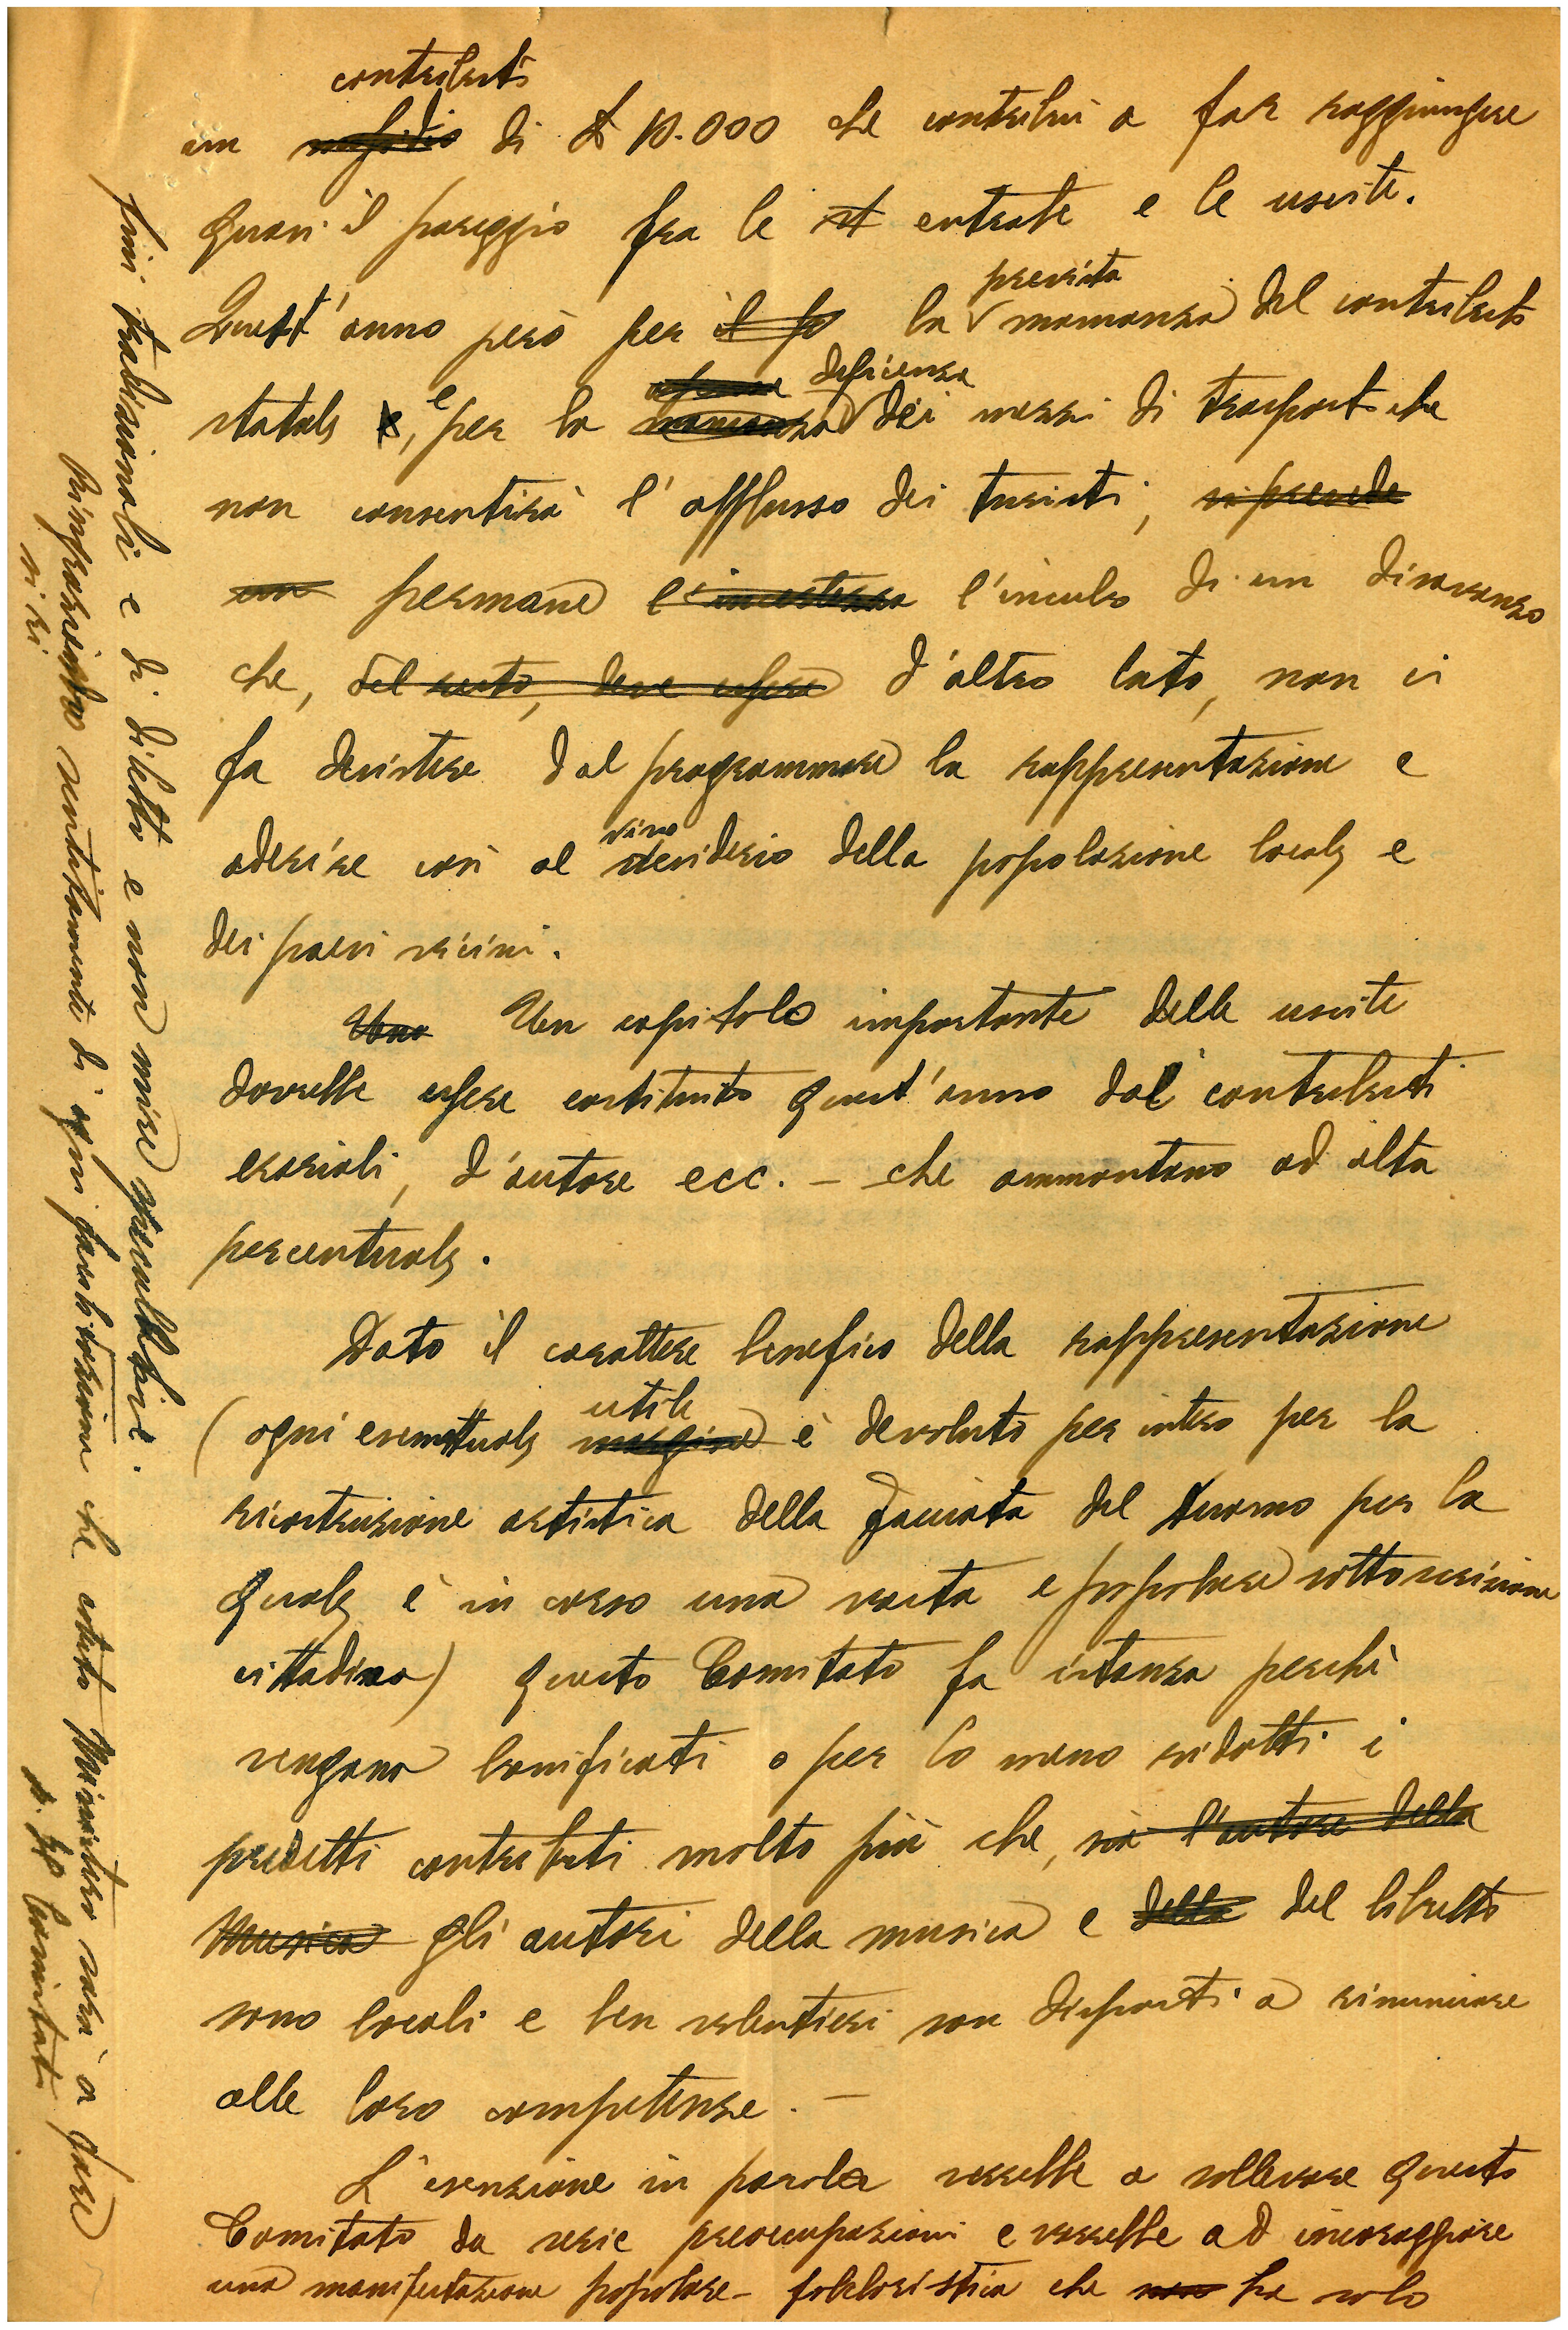 contributo
un sussidio di £ 10.000 che contribuì a far raggiungere
quasi il pareggio fra le st entrate e le uscite.
prevista
Quest'anno però per il fo la mancanza del contributo
deficienza
statale e, e per la mancanza dei mezzi di trasporto che
non consentirà l'afflusso dei turisti, si prevede
un permane l'incertezza l'incubo di un disavanzo
che, del resto, deve essere d'altro lato, non ci
fa desistere dal programmare la rappresentazione e
vivo
aderire così al desiderio della popolazione locale e
dei paesi vicini.
Uno Un capitolo importante delle uscite
dovrebbe essere costituito quest'anno dal contributi
erariali, d'autore ecc. - che ammontano ad alta
percentuale.
Dato il carattere benefico della rappresentazione
utile
(ogni eventuale margine è devoluto per intero per la
ricostruzione artistica della facciata del Duomo per la
quale è in corso una vasta e popolare sottoscrizione
cittadina) questo Comitato fa istanza perchè
vengano bonificati o per lo meno ridotti i
predetti contributi molto più che, sia l'autore della
Musica gli autori della musica e della del libretto
sono locali e ben volentieri son disposti a rinunciare
alle loro competenze. -
L'esenzione in parola verrebbe a sollevare questo
Comitato da serie preoccupazioni e varrebbe ad incoraggiare
una manifestazione popolare - folcloristica che non ha solo
fini tradizionali e di diletto e non mire speculative.
Ringraziamo sentitamente di ogni facilitazione che codesto Ministero sarà a fare
p. Il Comitato